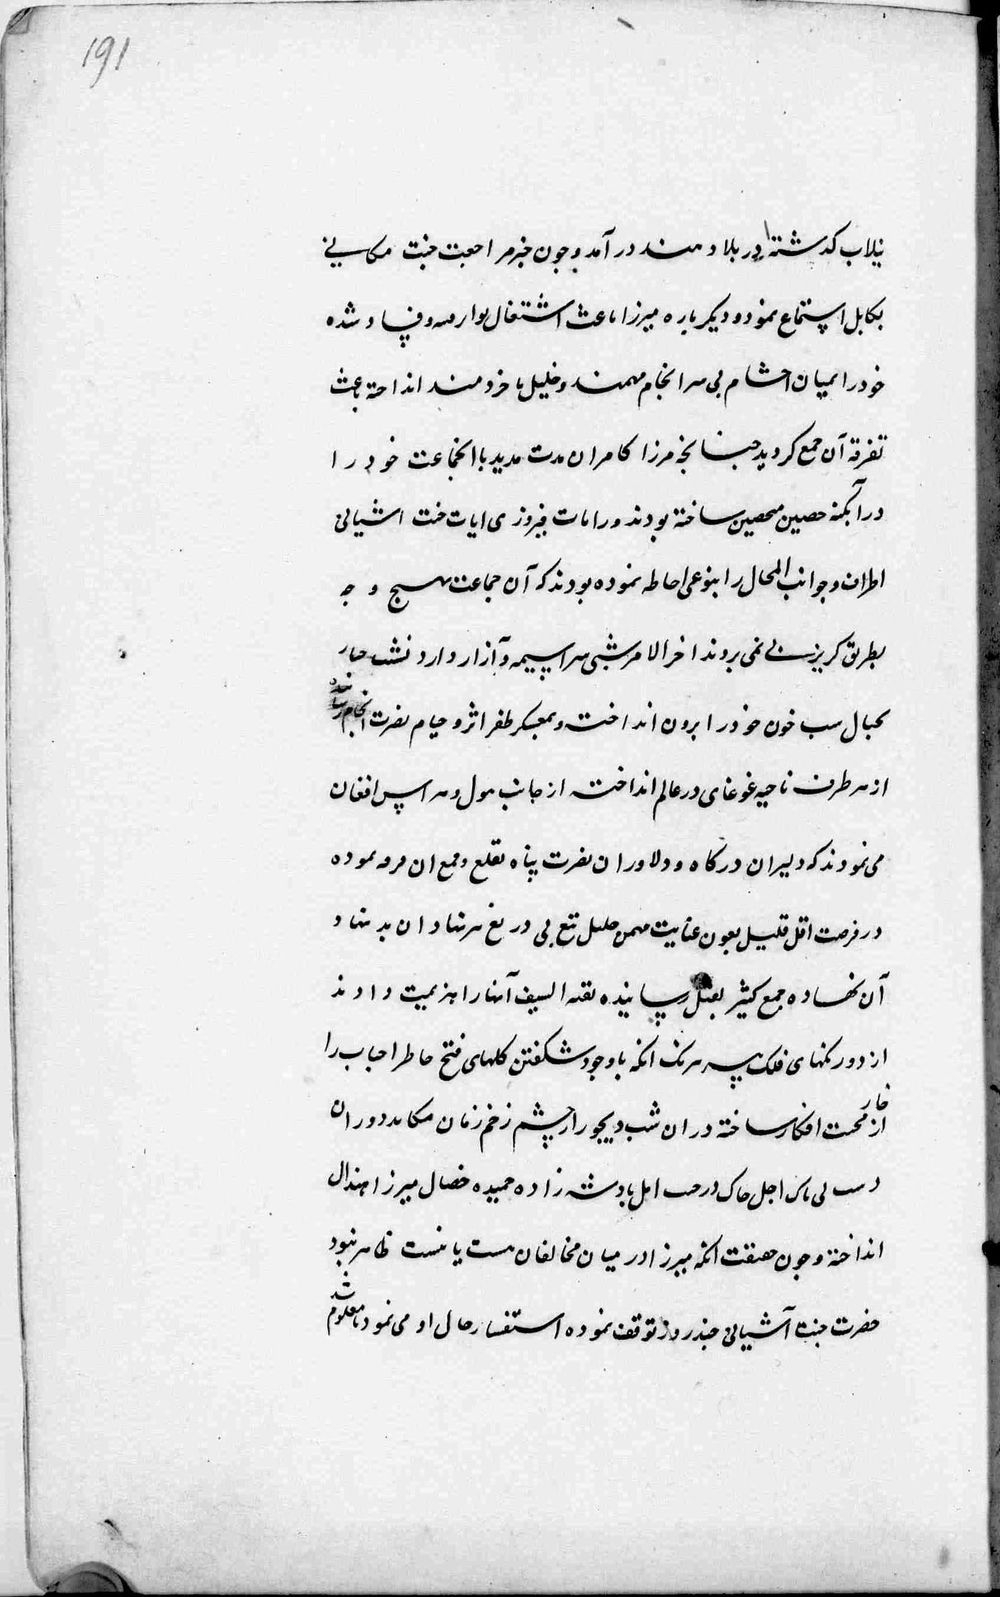 191
نیلاب کدشته در بلاد هند در آمد و چون خبر مراجعت جنت مکانی
بکابل استماع نمود و دیکر باره میرزا باعث اشتغال نوایر فساد شده
خود را میان احشام بی سرانجام مهمند و خلیل ناخردمند انداخته باعث
تفرقه آن جمع کردید چنانچه مرزا کامران مدت مدید با انجماعت خود را
در آنکنه حصین محصین ساخته بودند و رایات فیروزی ایات جنت اشیانی
اطراف و جوانب المحال را بنوعی احاطه نموده بودند که آن جماعت بهیج وجه
بطریق کریز پی نمی بردند اخر الامر شبی سراسیمه و آزار وارد نشد چار
بخیال شب خون خود را برون انداخت و بمعسکر ظفر اثر و خیام نصرت انجام رسانیده
از هر طرف ناحیه غوغای در عالم انداخت از جانب هول و هراس افغان
می نمودند که دلیران درکاه و دلاوران نصرت پناه بقلع و قمع ان فرقه نموده
در فرصت اقل قلیل بعون عنایت مهمن جلیل تیغ بی دریغ بر نهادان بد نهاد
آن نهاده جمع کثیر بقتل رسانیده بقیه السیف آنها را هزیمت دادند
از دو رنکیهای فلک پر نیرنک انکه باوجود شکفتن کلهای فتح خاطر احباب را
از خار محنت افکار ساخته در ان شب دیجور از چشم زخم زمان مکاید دوران
دست بی باک اجل خاک در جیب امل پادشه زاده حمیده خصال میرزا هندال
انداخته و چون حقیقت انکه میرزا در میان مخالفان هست یا نیست ظاهر نبود
حضرت جنت آشیانی چند روز توقف نموده استفسار حال او می نمود تا معلوم شد